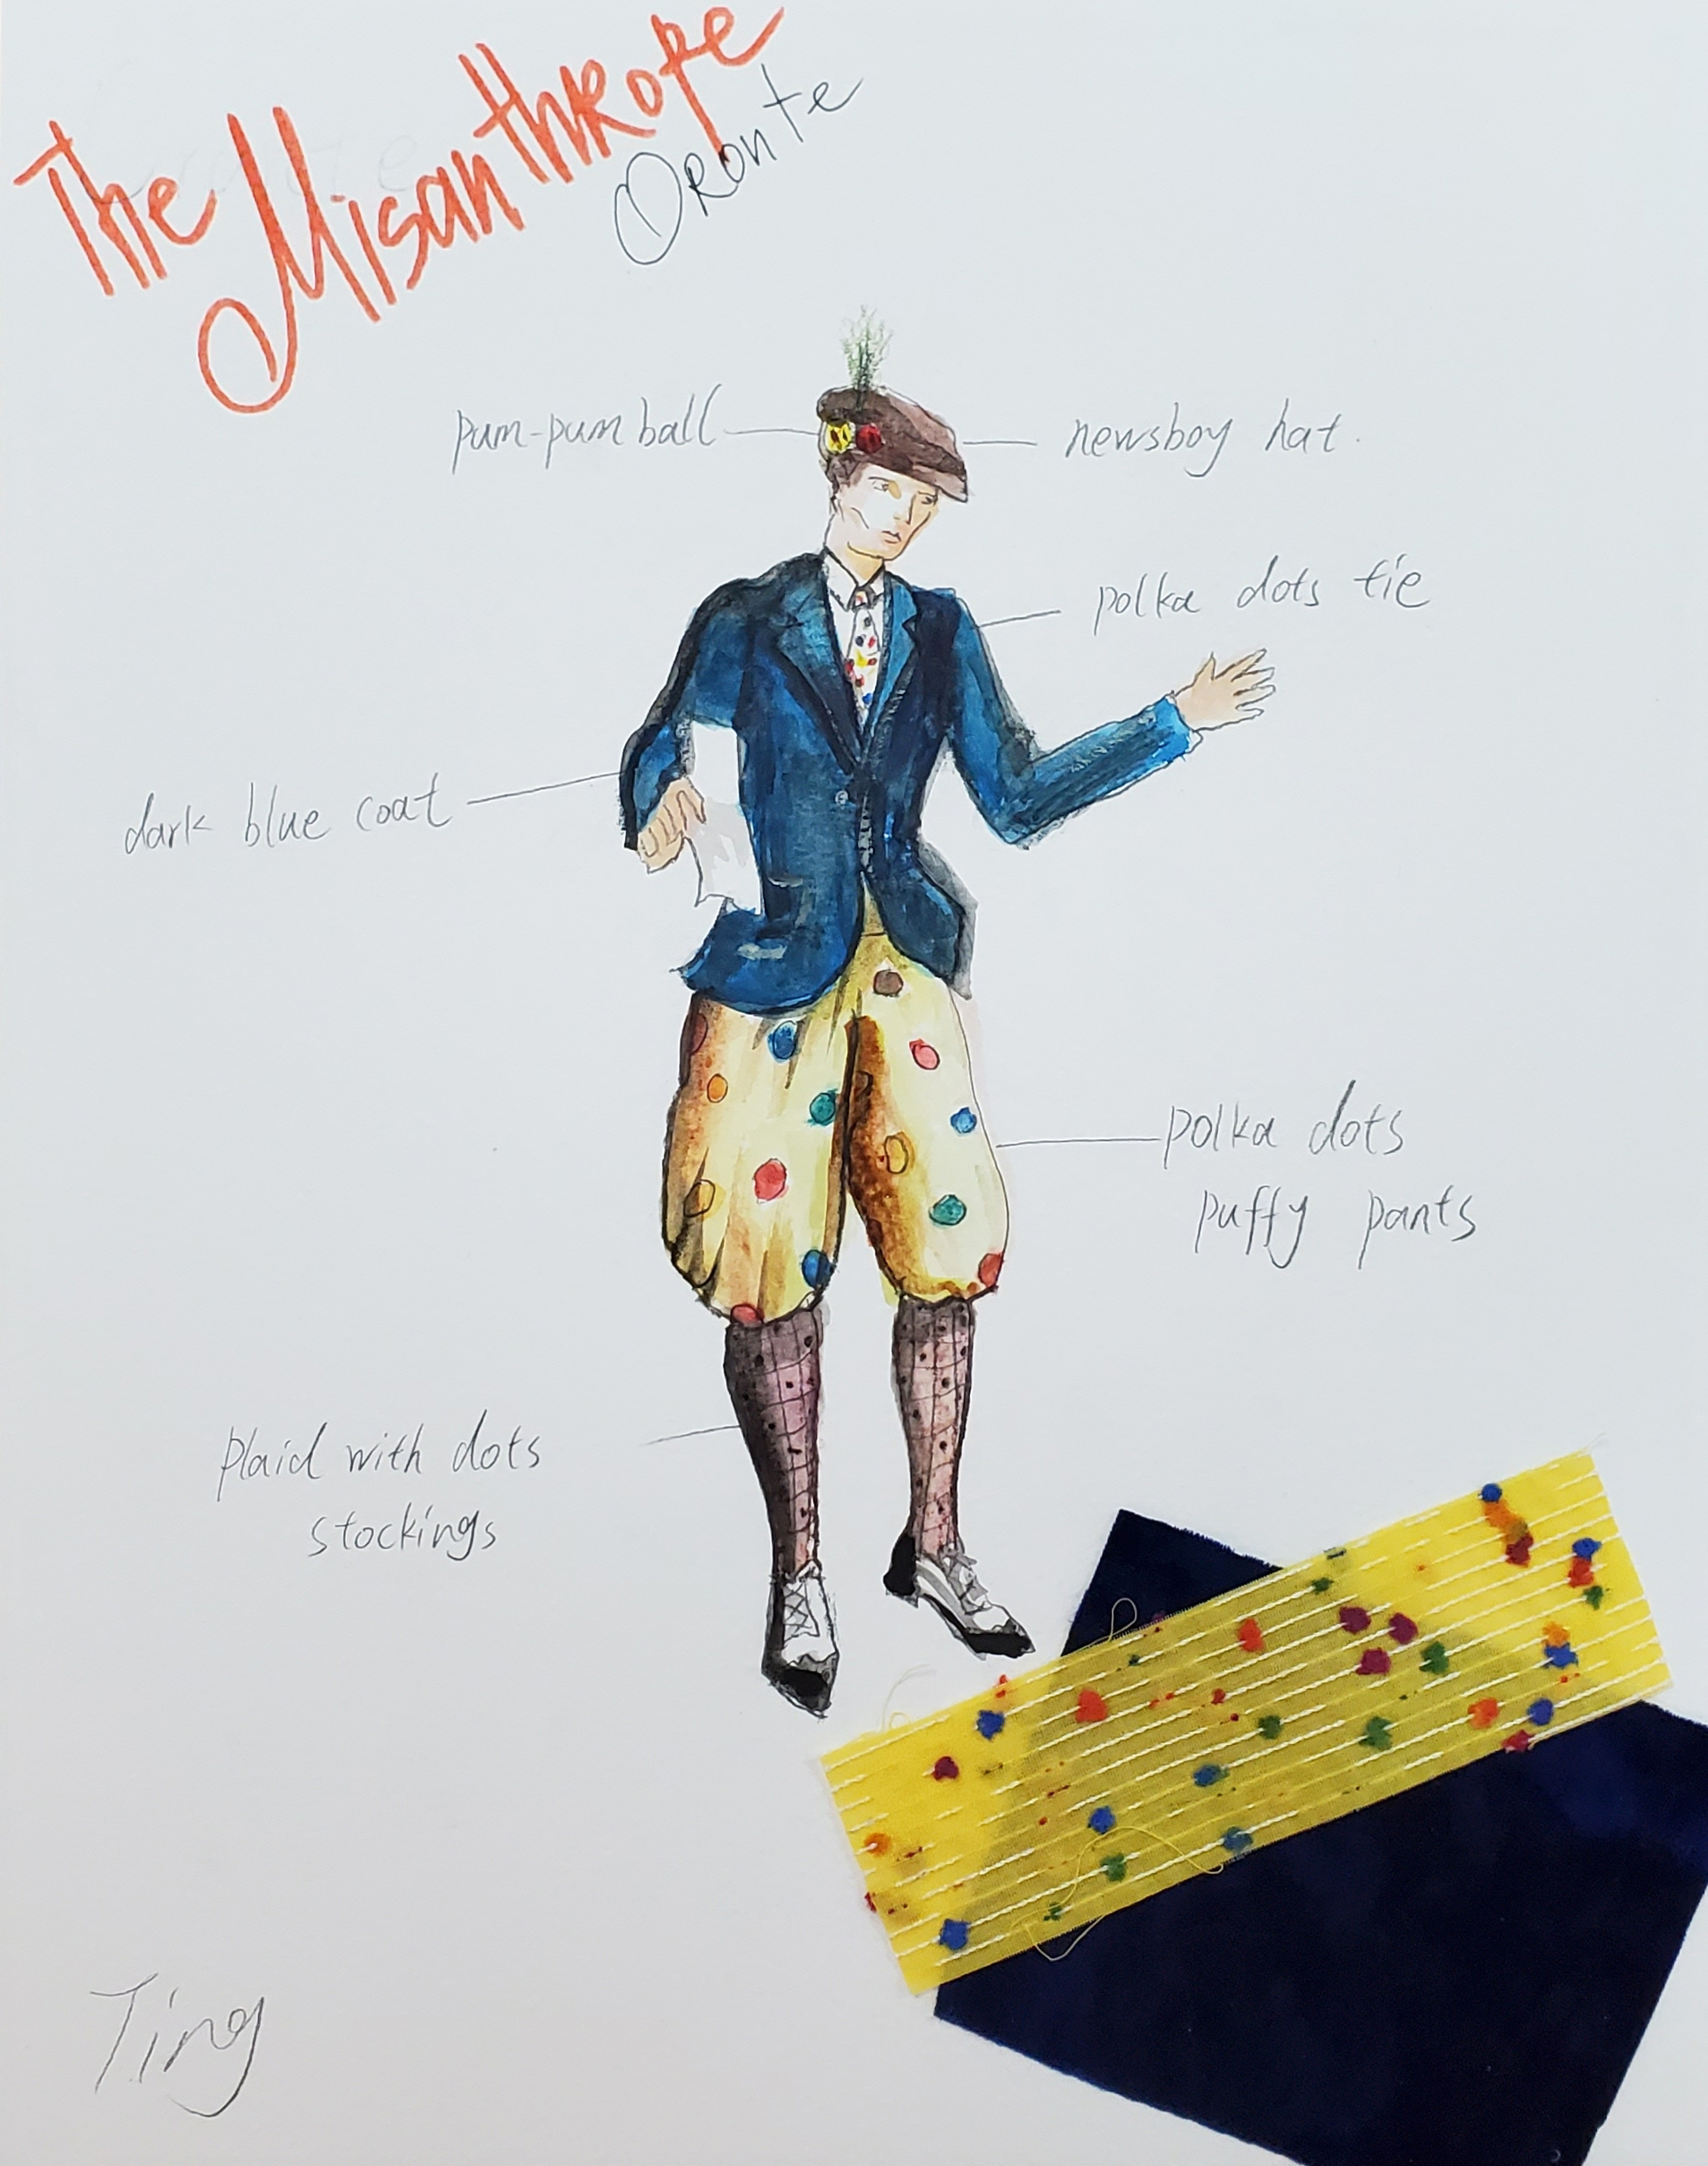 The Misanthrope
Oronte
pum-pum ball
newsboy hat.
polka dots tie
dark blue coat
polka dots
puffy pants
plaid with dots
stockings
Ting